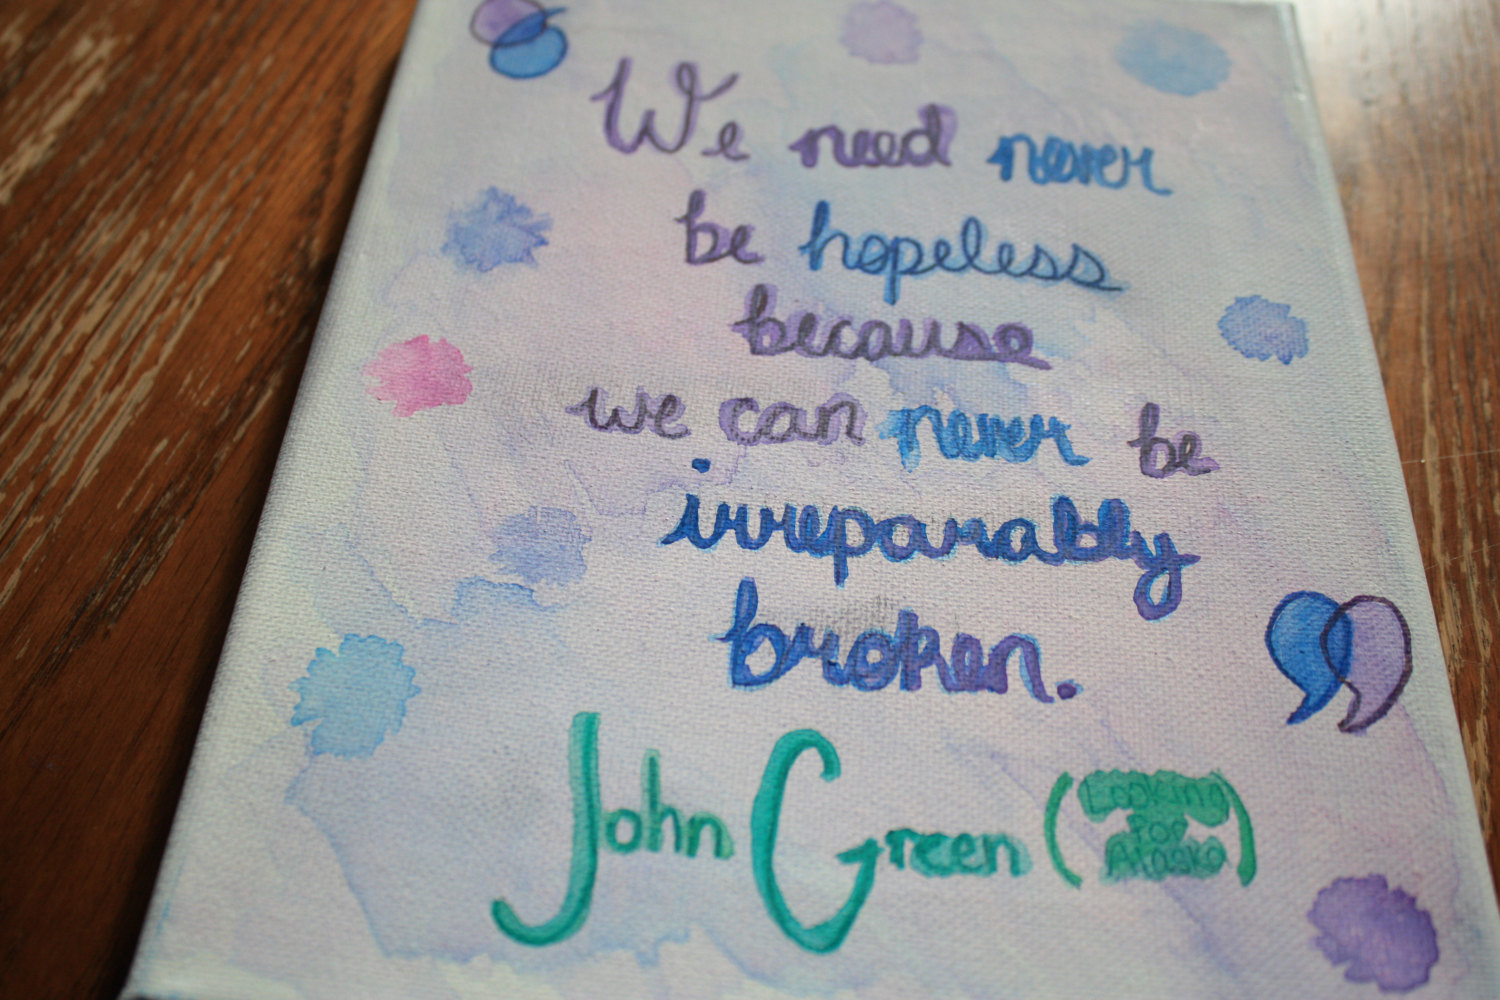 We need never
be hopeless
because
we can never be
irreparably
broken.
John Green (Looking
For
Alaska)